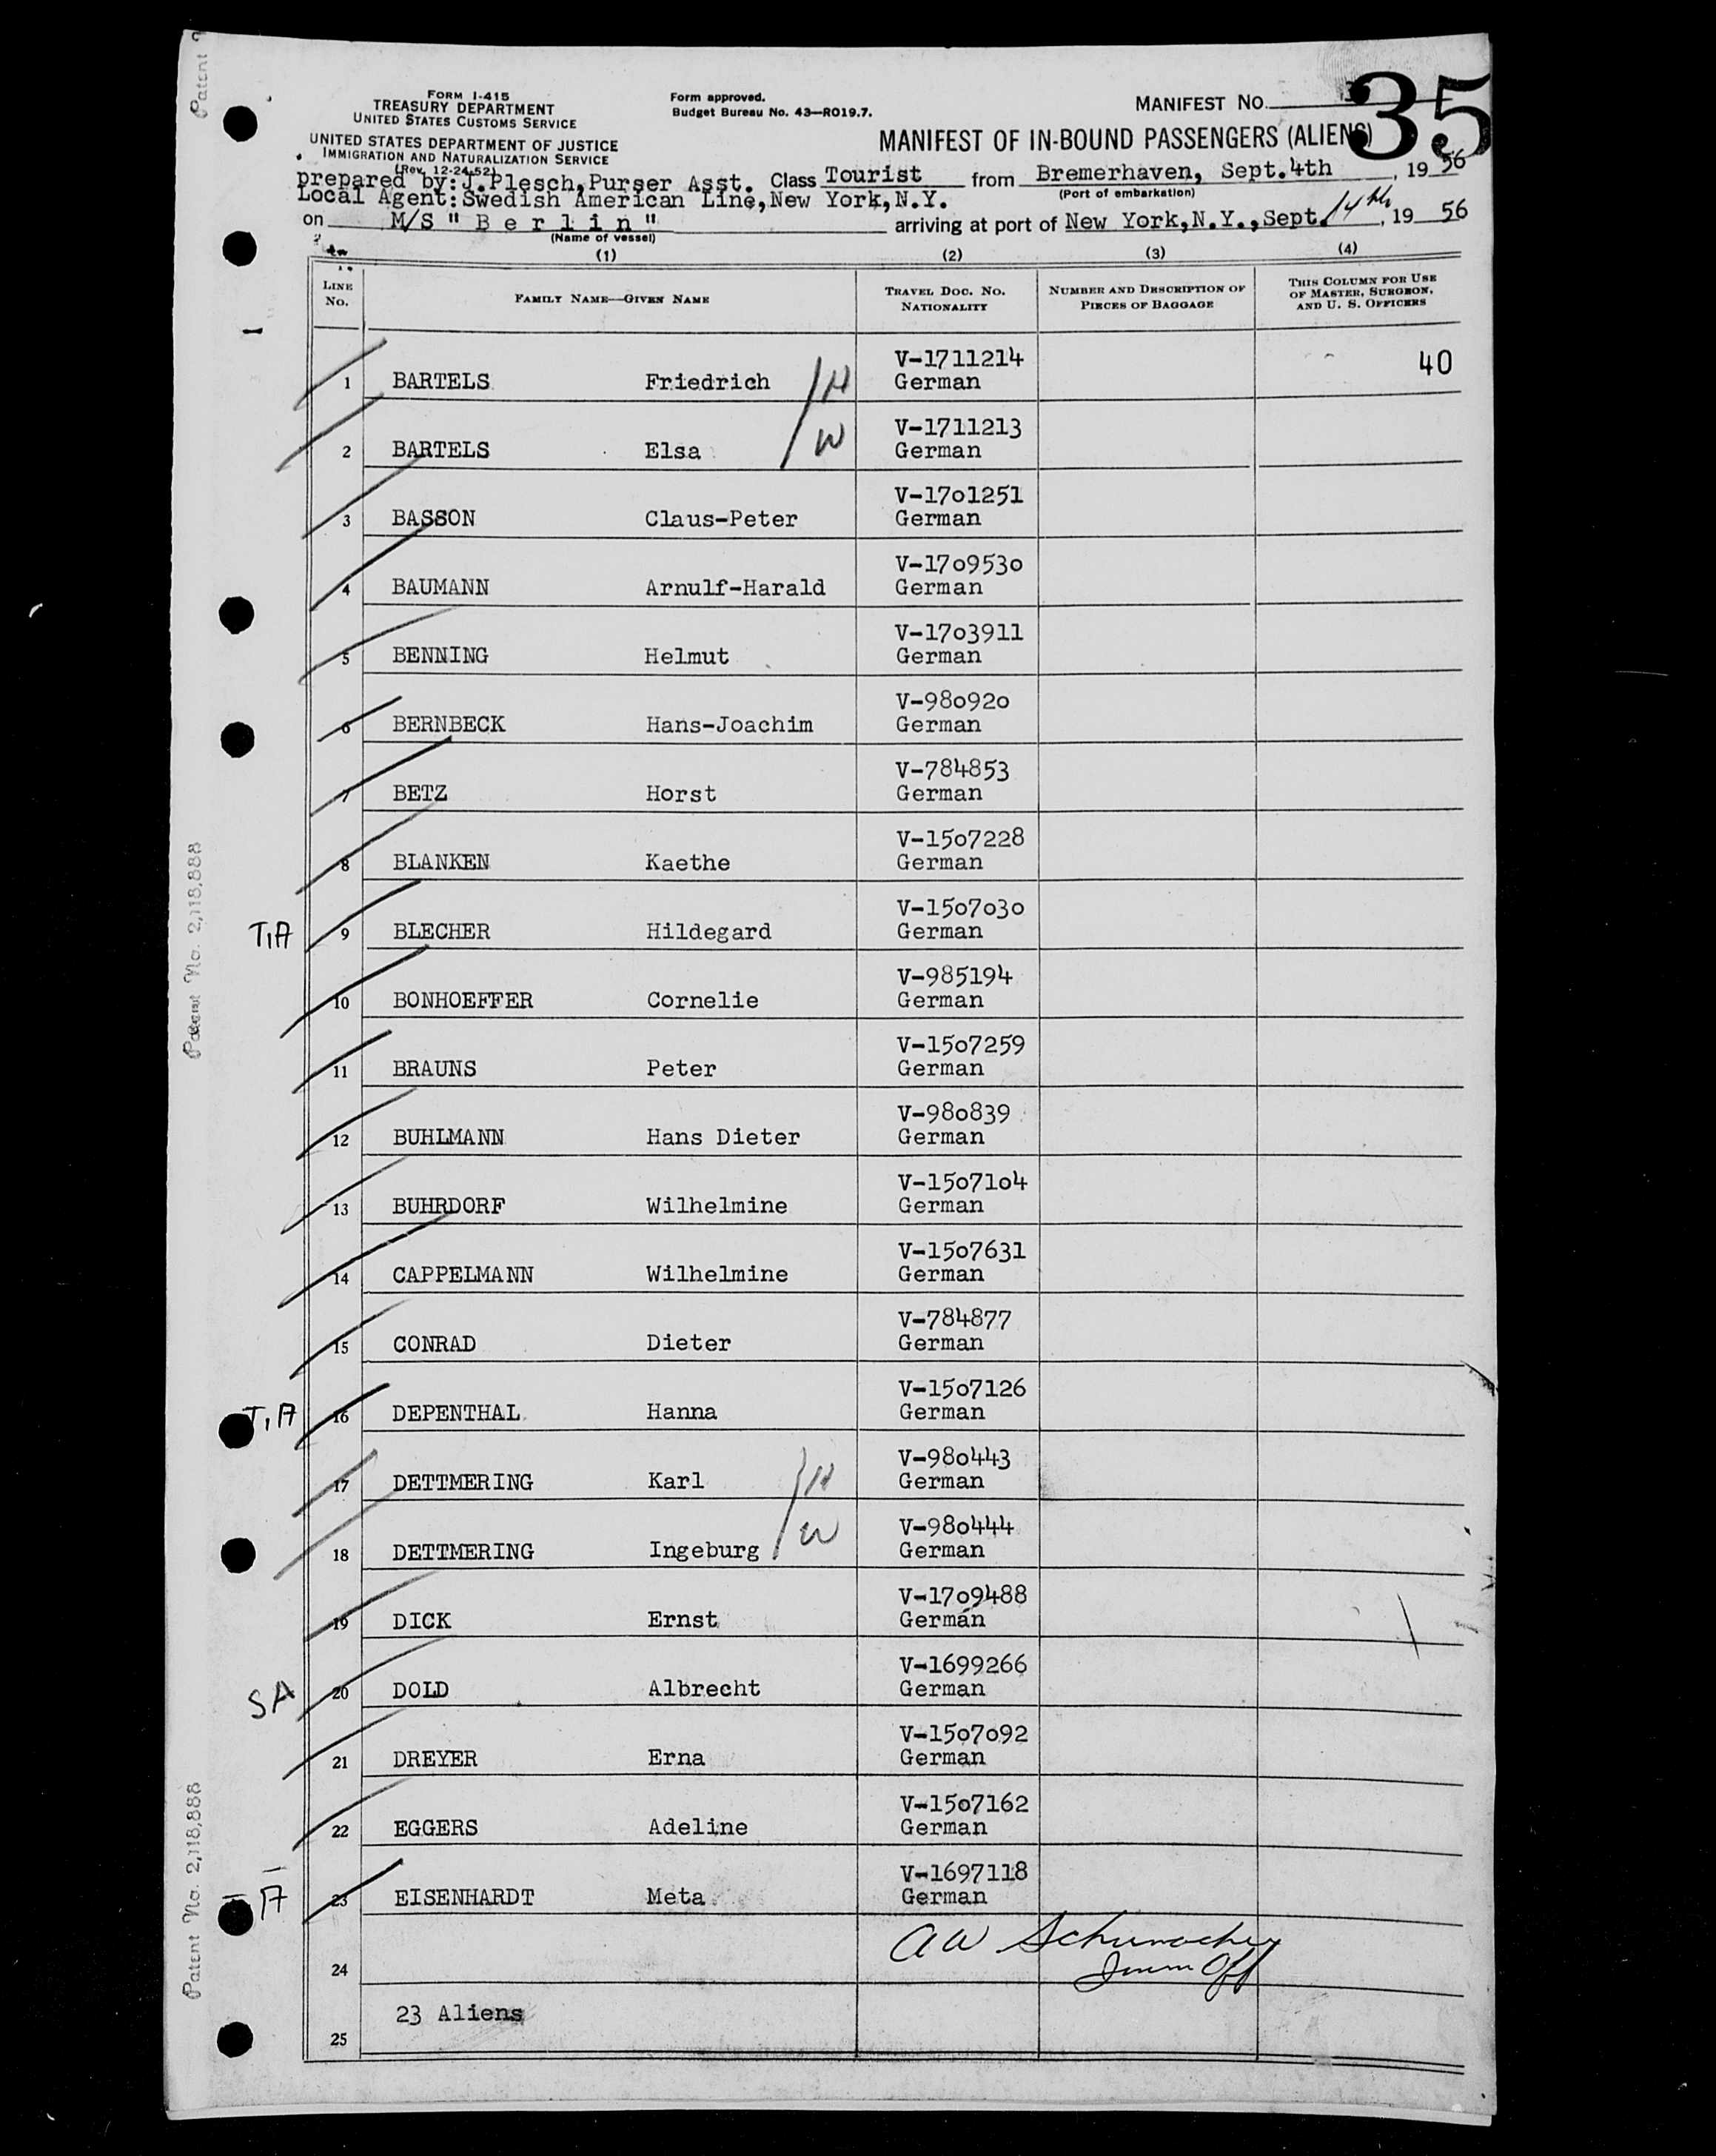 35
FORM I-415
TREASURY DEPARTMENT
UNITED STATES CUSTOMS SERVICE
Form approved.
Budget Bureau No. 43—RO19.7.
MANIFEST NO.
UNITED STATES DEPARTMENT OF JUSTICE
IMMIGRATION AND NATURALIZATION SERVICE
(Rev. 12-24-52)
MANIFEST OF IN-BOUND PASSENGERS (ALIENS)
prepared by: J.Plesch,Purser Asst. Class Tourist from Bremerhaven, Sept.4th, 19 56
(Port of embarkation)
Local Agent:Swedish American Line,New York,N.Y.
on M/S " B e r l i n " arriving at port of New York,N.Y.,Sept. 14th, 19 56
(Name of vessel)
(1) (2) (3) (4)
LINE NO. FAMILY NAME—GIVEN NAME TRAVEL DOC. NO. NATIONALITY NUMBER AND DESCRIPTION OF PIECES OF BAGGAGE THIS COLUMN FOR USE OF MASTER, SURGEON, AND U. S. OFFICERS
V-1711214 40
1 BARTELS Friedrich H German
V-1711213
2 BARTELS Elsa W German
V-1701251
3 BASSON Claus-Peter German
V-1709530
4 BAUMANN Arnulf-Harald German
V-1703911
5 BENNING Helmut German
V-980920
6 BERNBECK Hans-Joachim German
V-784853
7 BETZ Horst German
V-1507228
8 BLANKEN Kaethe German
V-1507030
T,A 9 BLECHER Hildegard German
V-985194
10 BONHOEFFER Cornelie German
V-1507259
11 BRAUNS Peter German
V-980839
12 BUHLMANN Hans Dieter German
V-1507104
13 BUHRDORF Wilhelmine German
V-1507631
14 CAPPELMANN Wilhelmine German
V-784877
15 CONRAD Dieter German
V-1507126
T,A 16 DEPENTHAL Hanna German
V-980443
17 DETTMERING Karl H German
V-980444
18 DETTMERING Ingeburg W German
V-1709488
19 DICK Ernst German
V-1699266
SA 20 DOLD Albrecht German
V-1507092
21 DREYER Erna German
V-1507162
22 EGGERS Adeline German
V-1697118
A 23 EISENHARDT Meta German
A W Schumacher
Imm Off
24
23 Aliens
25
Patent No. 2,118,888
Patent No. 2,118,888
Patent